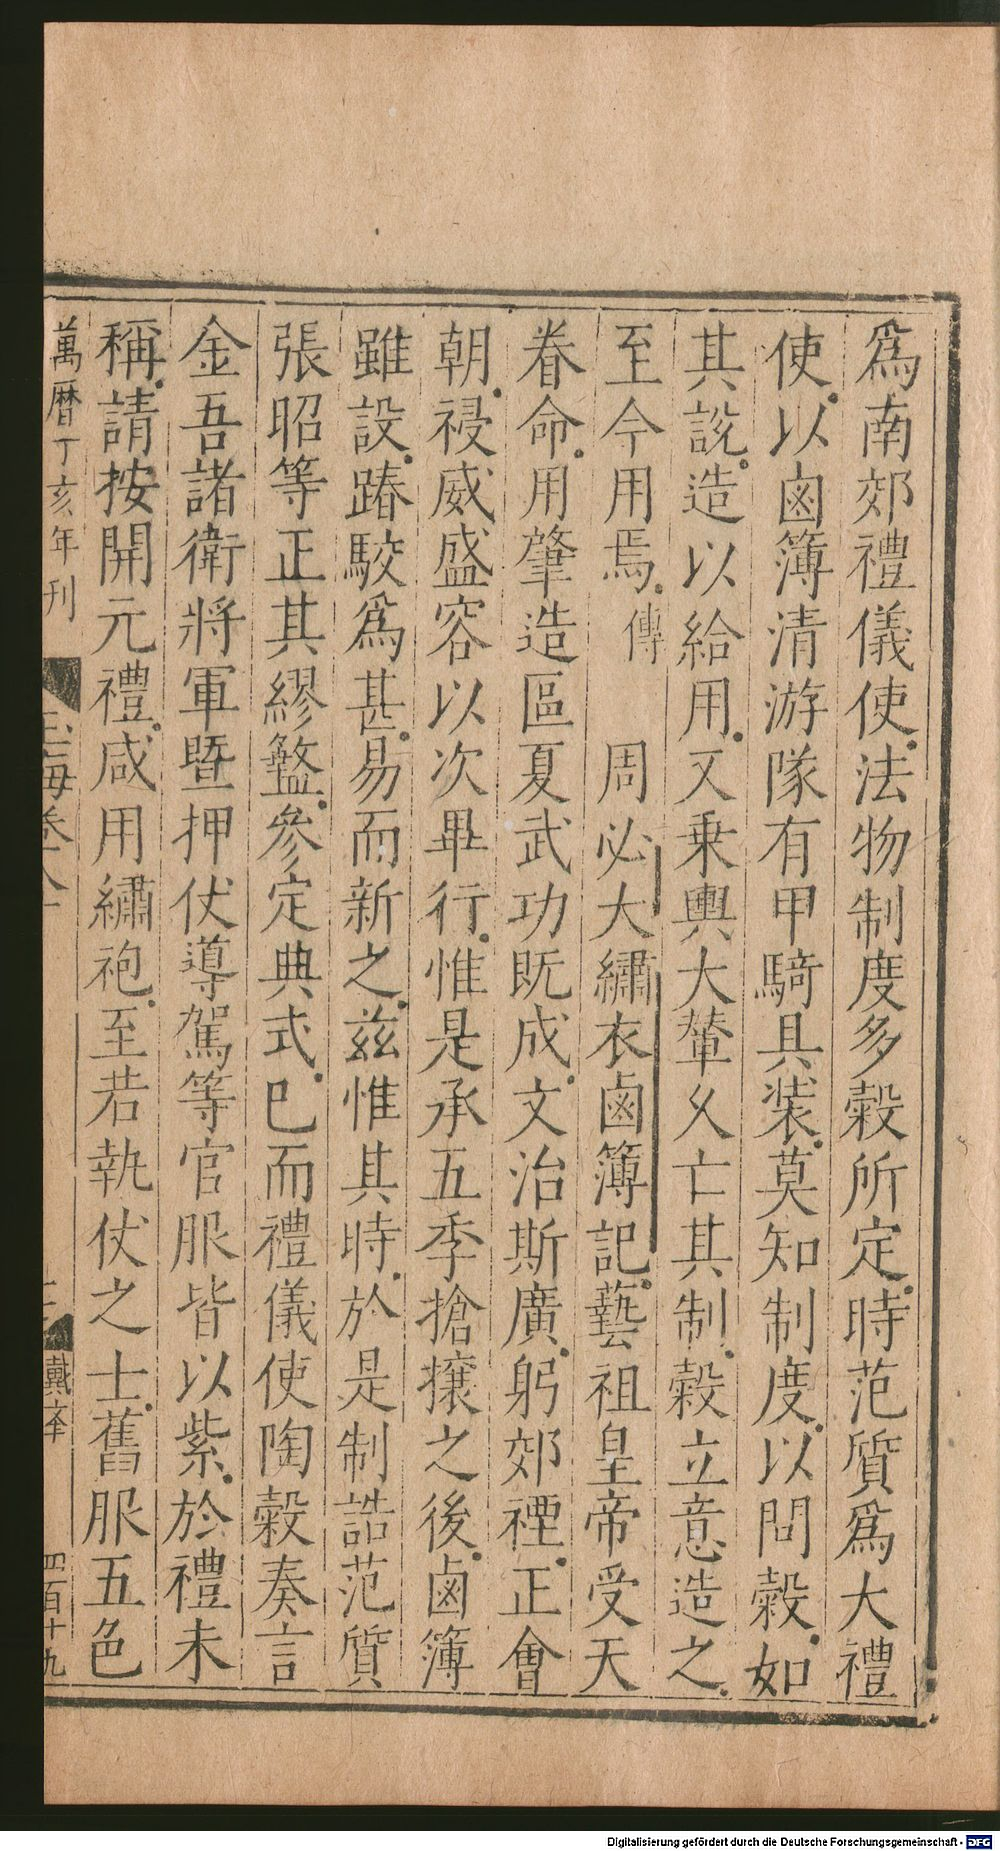 爲南郊禮儀使法物制度多糓所定時范質爲大禮
使以鹵簿清游隊有甲騎具装莫知制度以問糓如
其説造以給用又乗輿大輦久亡其制糓立意造之
至今用焉傳　周必大繡衣鹵簿記藝祖皇帝受天
眷命用肇造區夏武功既成文治斯廣躬郊禋正會
朝祲威盛容以次畢行惟是承五季搶攘之後鹵簿
雖設踳駮爲甚易而新之兹惟其時於是制誥范質
張昭等正其繆盭參定典式巳而禮儀使陶糓奏言
金吾諸衛將軍暨押仗導駕等官服皆以紫於禮未
稱請按開元禮咸用繡袍至若執仗之士舊服五色
萬曆丁亥年刊　玉海卷八　戴　四百十九
Digitalisierung gefördert durch die Deutsche Forschungsgemeinschaft - DFG